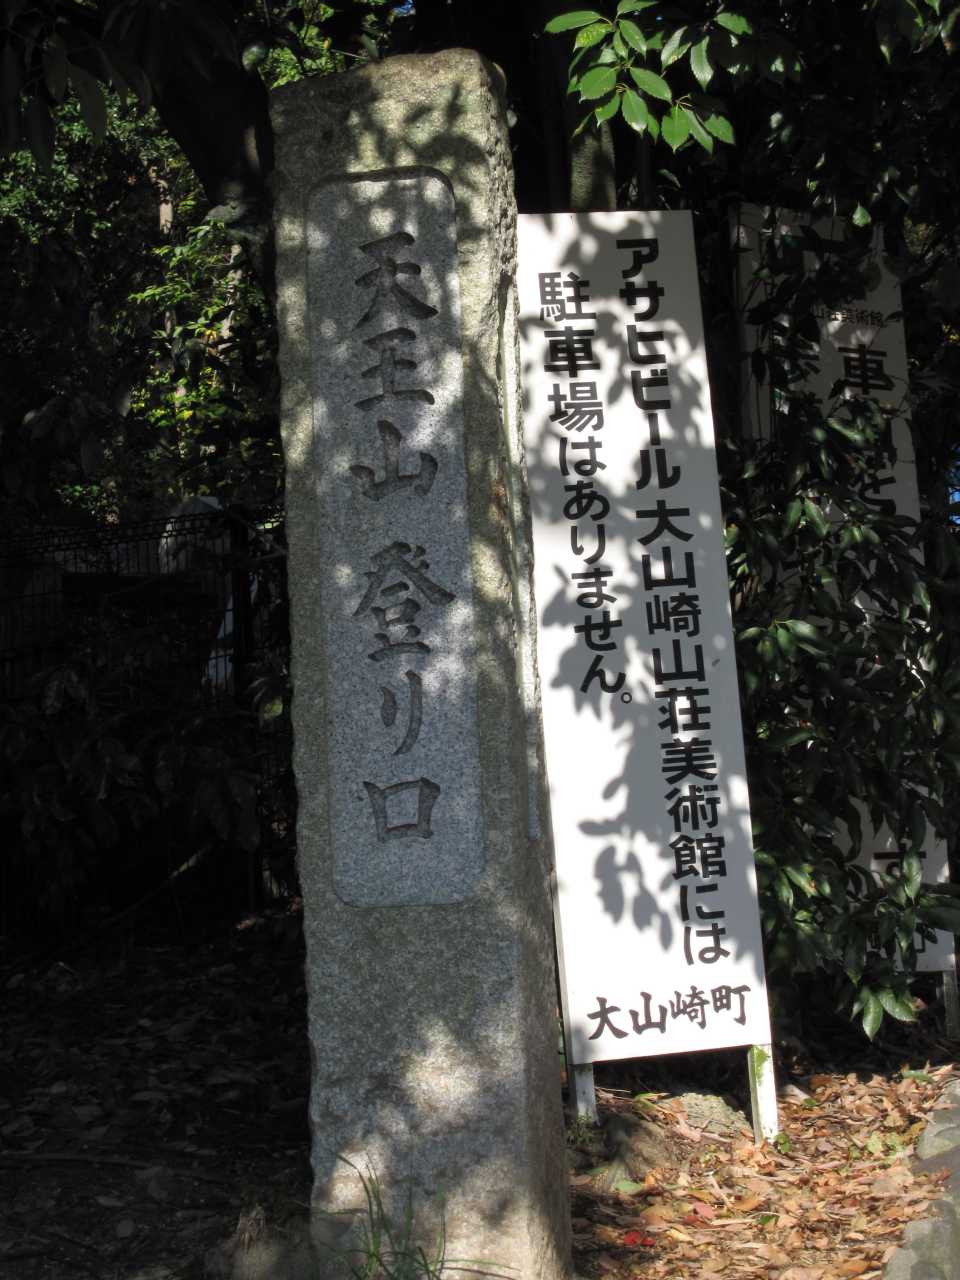 天王山登リ口
アサヒビール大山崎山荘美術館には
駐車場はありません。
大山崎町
山荘美術館